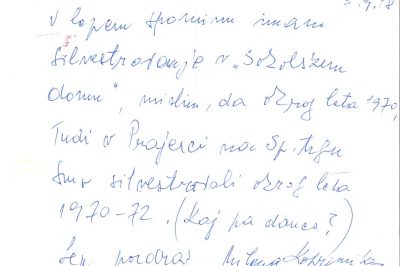 5.9.18
V lepem spominu imam
silvestrovanje v „Sokolskem
domu", mislim, da okrog leta 1970,
Tudi v Prajerci na Sp. trgu
smo silvestrovali okrog leta
1970-72. (Kaj pa danes?)
Lep pozdrav Milena